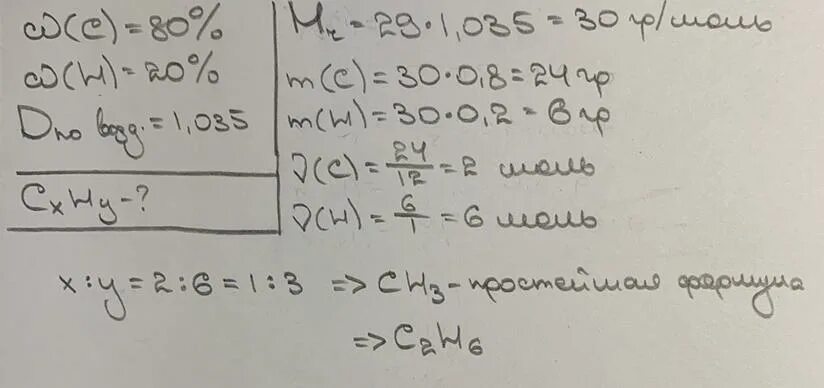 ω(C) = 80%
ω(H) = 20%
Dпо возд. = 1,035
CxHy - ?
Mr = 29·1,035 = 30 гр/моль
m(C) = 30·0,8 = 24 гр
m(H) = 30·0,2 = 6 гр
ν(C) = 24/12 = 2 моль
ν(H) = 6/1 = 6 моль
x:y = 2:6 = 1:3 => CH3 - простейшая формула
=> C2H6